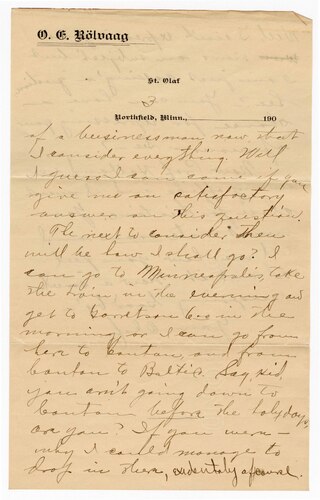 O. E. Rölvaag
St. Olaf
3
Northfield, Minn., 190
of a businessman now that
I consider everything. Well
I guess I can come if you
give me an satisfactory
answer on this question.
The next to consider then
will be how I shall go? I
can go to Minneapolis, take
the train in the evening and
get to Garretson in the
morning or I can go from
here to Canton, and from
Canton to Baltic. Say, kid
you ain't going down to
Canton before the holydays,
are you? If you were –
why I could manage to
drop in there, accidentaly of course.